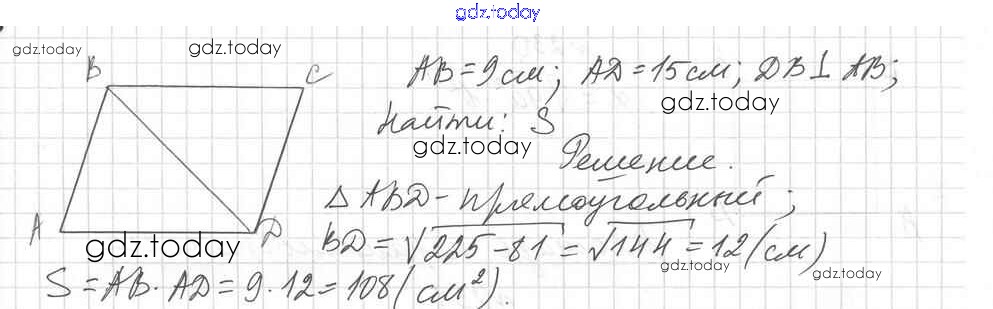 gdz.today
gdz.today gdz.today
B C AB = 9 см; AD = 15 см; DB ⊥ AB;
gdz.today
Найти: S
gdz.today
Решение.
△ ABD - прямоугольный;
A D BD = √225 - 81 = √144 = 12 (см)
gdz.today gdz.today gdz.today
S = AB · AD = 9 · 12 = 108 (см²).